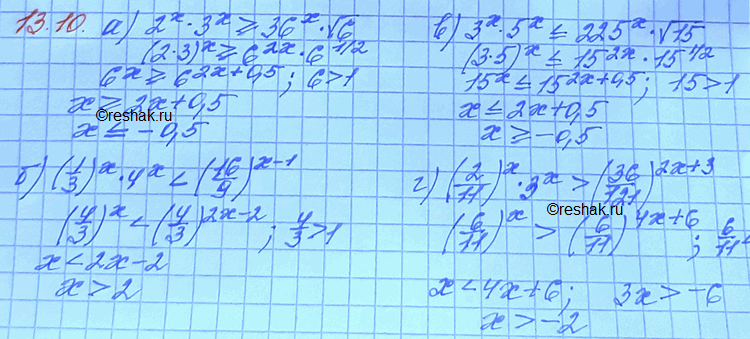 13.10. а) 2^x · 3^x ≥ 36^x · √6
(2·3)^x ≥ 6^{2x} · 6^{1/2}
6^x ≥ 6^{2x+0,5}; 6>1
x ≥ 2x+0,5
©reshak.ru
x ≤ -0,5
в) 3^x · 5^x ≤ 225^x · √15
(3·5)^x ≤ 15^{2x} · 15^{1/2}
15^x ≤ 15^{2x+0,5}; 15>1
x ≤ 2x+0,5
x ≥ -0,5
б) (1/3)^x · 4^x < (16/9)^{x-1}
(4/3)^x < (4/3)^{2x-2}; 4/3>1
x < 2x-2
x > 2
г) (2/11)^x · 3^x > (36/121)^{2x+3}
©reshak.ru
(6/11)^x > (6/11)^{4x+6}; 6/11<
x < 4x+6; 3x > -6
x > -2